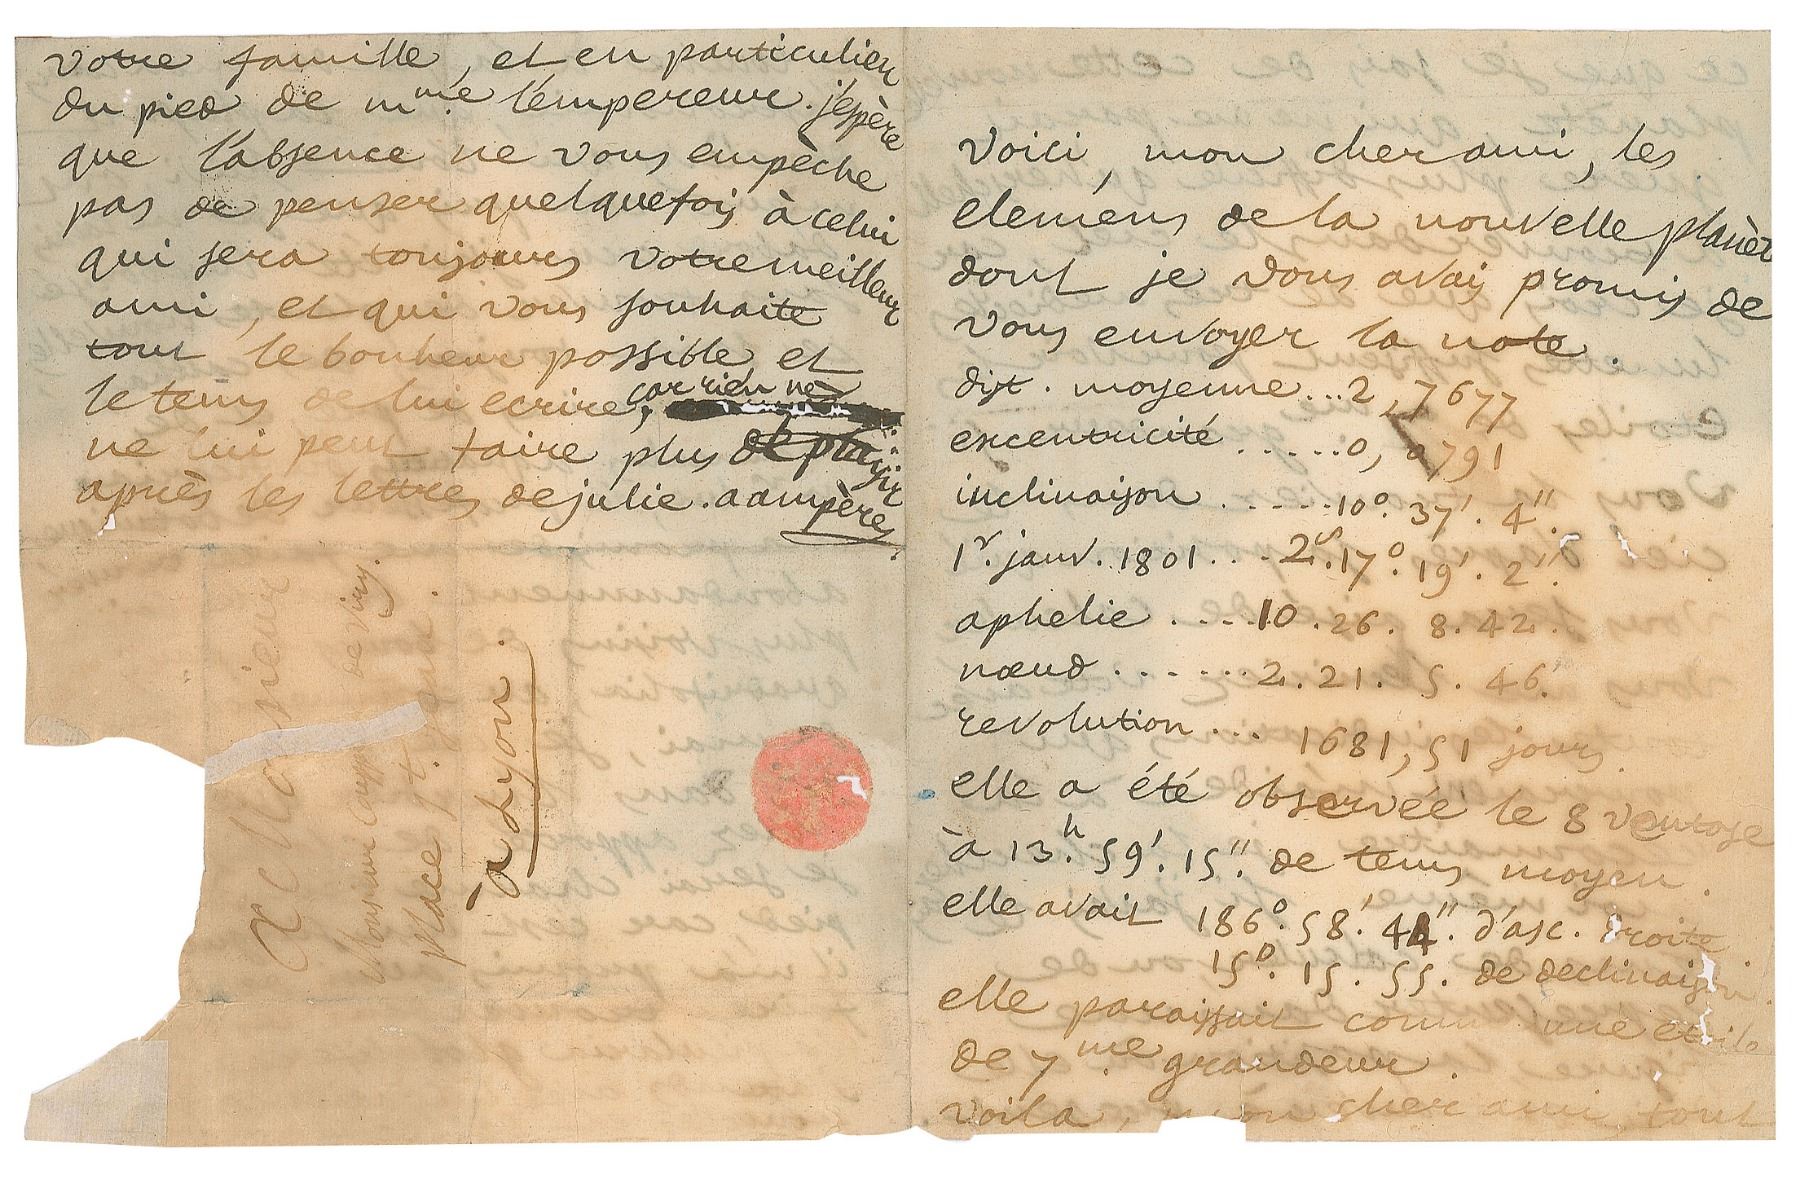 votre famille, et en particulier
du pied de m.me l'empereur. j'espère
que l'absence ne vous empèche
pas de penser quelquefois à celui
qui sera toujours votre meilleur
ami, et qui vous souhaite
tout le bonheur possible et
le tems de lui ecrire, car rien ne
ne lui peut faire plus de plaisir
après les lettres de julie. a ampère.
a Monsieur
Monsieur
place
à Lyon.
voici, mon cher ami, les
elemens de la nouvelle planète
dont je vous avais promis de
vous envoyer la note.
dist. moyenne...2,7677
excentricité.....0,0791
inclinaison.....10°.37'.4".
1r. janv. 1801...2s.17°.19'.2".
aphelie....10.26.8.42.
nœud......2.21.5.46.
revolution... 1681,51 jours.
elle a été observée le 8 ventose
à 13.h 59'.15". de tems moyen.
elle avait 186°.58'.44". d'asc. droite
15°.15.55. de declinaison.
elle paraissait comme une etoile
de 7.me grandeur.
voila, mon cher ami, tout